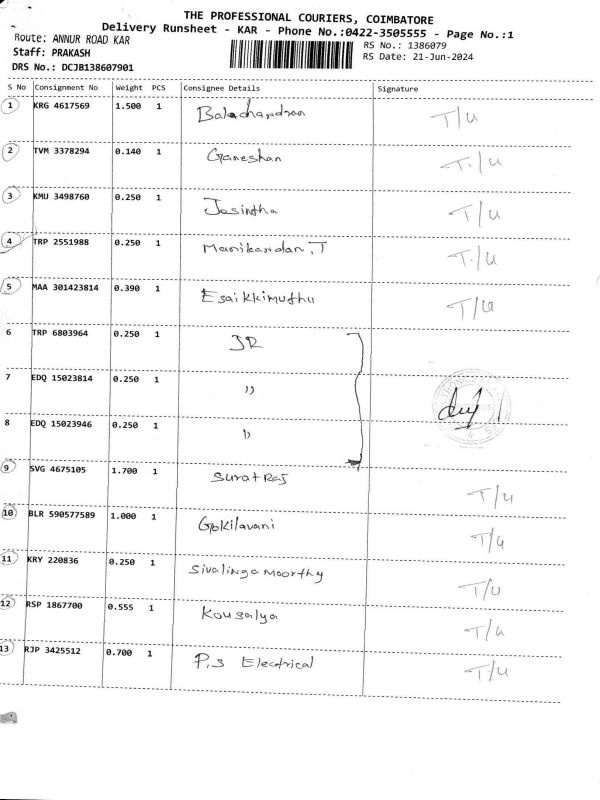 THE PROFESSIONAL COURIERS, COIMBATORE
Delivery Runsheet - KAR - Phone No.:0422-3505555 - Page No.:1
Route: ANNUR ROAD KAR
RS No.: 1386079
Staff: PRAKASH
RS Date: 21-Jun-2024
DRS No.: DCJB138607901
S No Consignment No Weight PCS Consignee Details Signature
1 KRG 4617569 1.500 1 Balachandran T/U
2 TVM 3378294 0.140 1 Ganeshan T./U
3 KMU 3498760 0.250 1 Josintha T/U
4 TRP 2551988 0.250 1 Manikandan.T T./U
5 MAA 301423814 0.390 1 Esaikkimuthu T/U
6 TRP 6803964 0.250 1 JR
7 EDQ 15023814 0.250 1 ))
8 EDQ 15023946 0.250 1 ))
9 SVG 4675105 1.700 1 Surat Raj T/U
10 BLR 590577589 1.000 1 Gokilavani T/U
11 KRY 220836 0.250 1 Sivalinga moorthy T/U
12 RSP 1867700 0.555 1 Kousalya T/U
13 RJP 3425512 0.700 1 P.S Electrical T/U